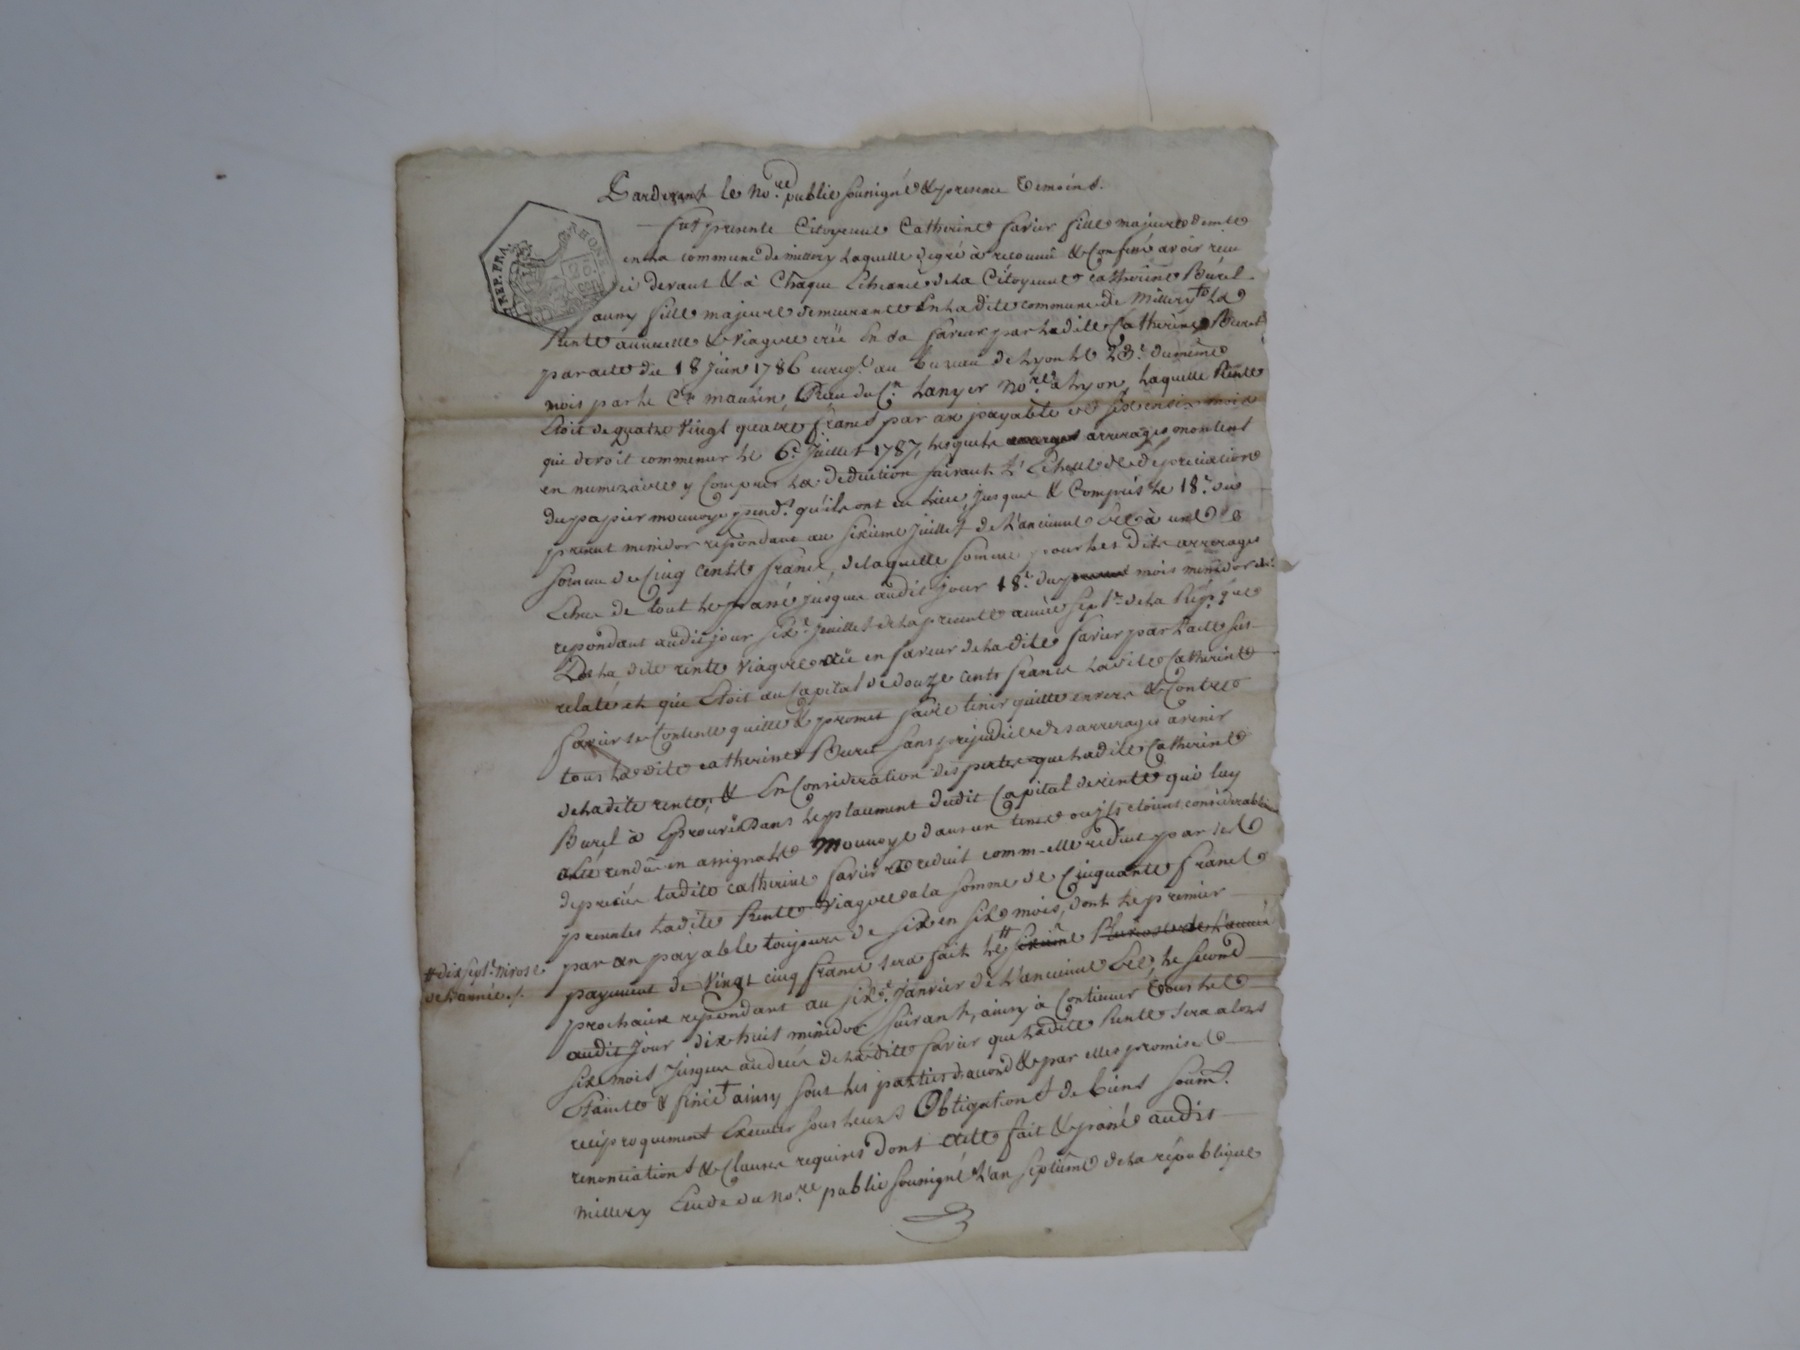 Pardevant le No.re public soussigné & presence Temoins.
REP. FRA. RHONE
fut presente Citoyenne Catherine favier fille majeure demte
en la commune de millery laquelle degré à reconnu & Confessé avoir reçu
ci devant & à Chaque Echeance de la Citoyenne catherine Burel
aussy fille majeure demeurante En la dite commune de Millery, La
Rente annuelle & Viagere crée En sa faveur par la dite Catherine Burel
par acte du 18 juin 1786 enregt. au bureau de Lyon le 23e. du même
mois par le Cn. mauzin, Reçu du Cn. Lanyer No.re à Lyon, laquelle Rente
Etoit de quatre Vingt quatre francs par an payable de six en six mois
qui devoit commencer le 6e. juillet 1787, lesquels arrerages montent
en numeraire y Compris la deduction suivant L'Echelle de depreciation
du papier monnoye pendt. qu'ils ont eu lieu, jusques & Compris le 18e. du
present messidor repondant au sixieme juillet de L'ancienne Ere à une
somme de Cinq Cents francs, de laquelle somme pour les dits arrerages
Echus de tout le passé jusques audit jour 18e. du present mois messidor
repondant audit jour sixe. juillet de la presente année sept.e de la Rep.que
De la dite rente Viagere crée en faveur de la dite favier par L'acte sus-
relaté et qui Etoit au Capital de douze cents francs la dite Catherine
favier se Contente quitte & promet faire tenir quitte envers & Contre
tous la dite catherine Burel sans prejudice des arrerages avenir
de la dite rente, & En Consideration des pertes que la dite Catherine
Burel à Eprouvé dans le placement dudit Capital de rente qui luy
rendu en assignats Monnoye dans un tems ou ils etoient considerablem
deprecié ladite catherine favier reduit comm-elle reduit par ses
presentes ladite Rente Viagere a la somme de Cinquante francs
par an payable toujours de six en six mois, dont le premier
payement de Vingt cinq francs sera fait le # sixieme Pluviose de L'année
# dix sept.e Nivose
de L'année ./.
prochaine repondant au sixe. Janvier de L'ancienne Ere, le second
audit jour dix huit messidor suivant, ainsy à Continuer tous les
six mois jusques au decés de la ditte favier que ladite Rente sera alors
Etainte & finie, ainsy sont les parties d'accord & par elles promise
reciproquement Executer sous leurs Obligations de biens soumt.
renonciations & Clauses requises dont acte fait & passé audit
millery Etude du No.re public soussigné L'an septieme de la republique